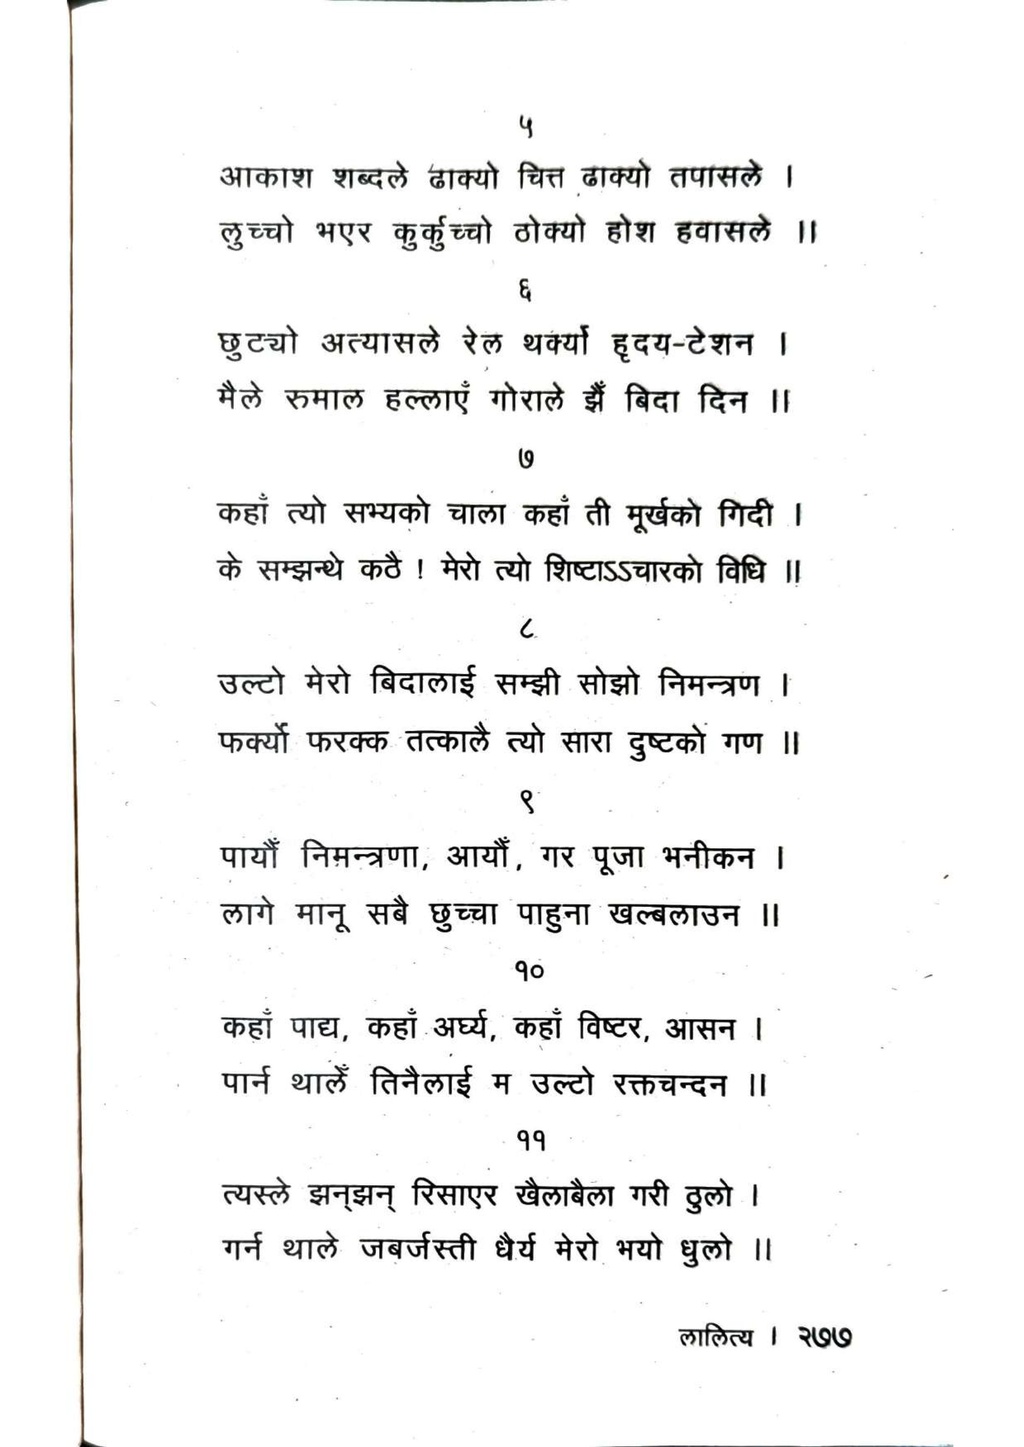 ५
आकाश शब्दले ढाक्यो चित्त ढाक्यो तपासले ।
लुच्चो भएर कुर्कुच्चो ठोक्यो होश हवासले ॥
६
छुट्यो अत्यासले रेल थर्क्यो हृदय-टेशन ।
मैले रुमाल हल्लाएँ गोराले झैँ बिदा दिन ॥
७
कहाँ त्यो सभ्यको चाला कहाँ ती मूर्खको गिदी ।
के सम्झन्थे कठै ! मेरो त्यो शिष्टाऽऽचारको विधि ॥
८
उल्टो मेरो बिदालाई सम्झी सोझो निमन्त्रण ।
फर्क्यो फरक्क तत्कालै त्यो सारा दुष्टको गण ॥
९
पायौँ निमन्त्रणा, आयौँ, गर पूजा भनीकन ।
लागे मानू सबै छुच्चा पाहुना खल्बलाउन ॥
१०
कहाँ पाद्य, कहाँ अर्घ्य, कहाँ विष्टर, आसन ।
पार्न थालेँ तिनैलाई म उल्टो रक्तचन्दन ॥
११
त्यस्ले झन्‌झन् रिसाएर खैलाबैला गरी ठुलो ।
गर्न थाले जबर्जस्ती धैर्य मेरो भयो धुलो ॥
लालित्य । २७७